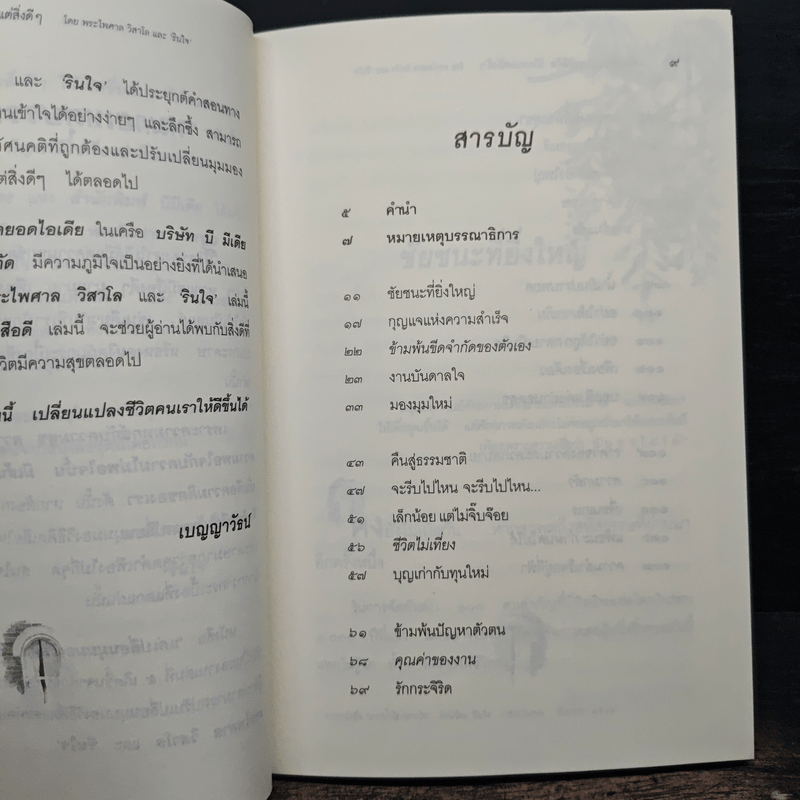 แต่สิ่งดีๆ โดย พระไพศาล วิสาโล และ 'รินใจ'
และ 'รินใจ' ได้ประยุกต์คำสอนทาง
นเข้าใจได้อย่างง่ายๆ และลึกซึ้ง สามารถ
ัศนคติที่ถูกต้องและปรับเปลี่ยนมุมมอง
ต่สิ่งดีๆ ได้ตลอดไป
ยอดไอเดีย ในเครือ บริษัท บี มีเดีย
ัด มีความภูมิใจเป็นอย่างยิ่งที่ได้นำเสนอ
ระไพศาล วิสาโล และ 'รินใจ' เล่มนี้
สือดี เล่มนี้ จะช่วยผู้อ่านได้พบกับสิ่งดีที่
วิตมีความสุขตลอดไป
นี้ เปลี่ยนแปลงชีวิตคนเราให้ดีขึ้นได้
เบญญาวัธน์
๙
สารบัญ
๕ คำนำ
๗ หมายเหตุบรรณาธิการ
๑๑ ชัยชนะที่ยิ่งใหญ่
๑๗ กุญแจแห่งความสำเร็จ
๒๒ ข้ามพ้นขีดจำกัดของตัวเอง
๒๓ งานบันดาลใจ
๓๓ มองมุมใหม่
๔๓ คืนสู่ธรรมชาติ
๔๗ จะรีบไปไหน จะรีบไปไหน...
๕๑ เล็กน้อย แต่ไม่จิ๊บจ๊อย
๕๖ ชีวิตไม่เที่ยง
๕๗ บุญเก่ากับทุนใหม่
๖๑ ข้ามพ้นปัญหาตัวตน
๖๘ คุณค่าของงาน
๖๙ รักกระจิริด